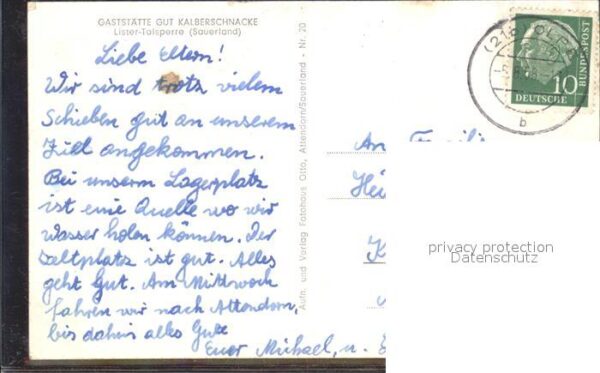 GASTSTÄTTE GUT KALBERSCHNACKE
Lister-Talsperre (Sauerland)
Liebe Eltern!
Wir sind trotz vielem
Schieben gut an unserem
Ziel angekommen.
Bei unserm Lagerplatz
ist eine Quelle wo wir
Wasser holen können. Der
Zeltplatz ist gut. Alles
geht gut. Am Mittwoch
fahren wir nach Attendorn,
bis dahin alles Gute
Euer Michael, u.
Aufn. und Verlag Fotohaus Otto, Attendorn/Sauerland - Nr. 20
An Familie
Hei
K
10
DEUTSCHE
BUNDESPOST
b
privacy protection
Datenschutz